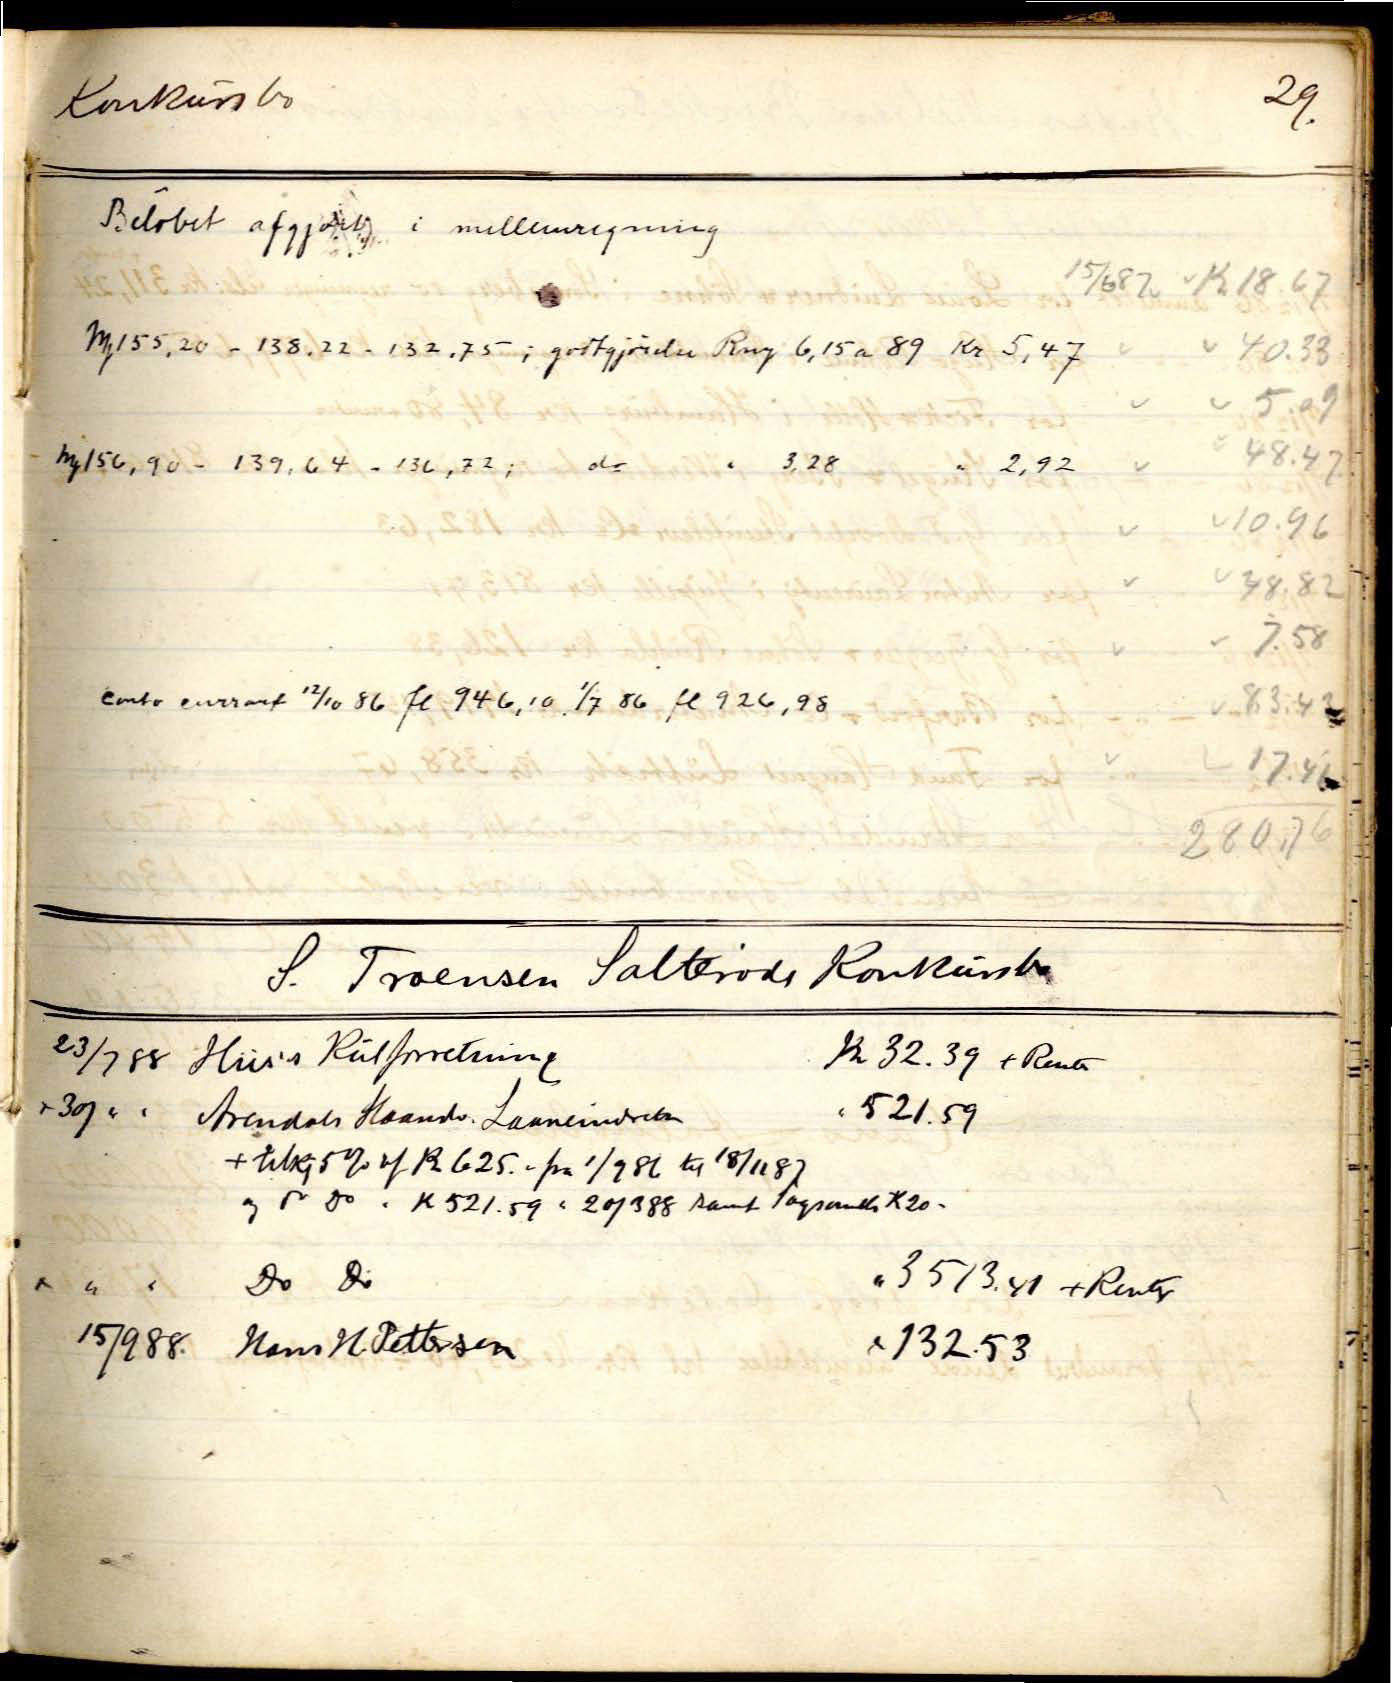 Konkursbo 29.
Beløbet afgjort i mellemregning
15/6 87 Kr 18.67
155,20 - 138.22 - 132.75; godtgjördes Rmg 6,15 a 89 Kr 5,47 40.33
5.09
156,90 - 139,64 - 136,72; do " 3,28 " 2,92 48.47
10.96
48.82
7.58
conto currant 12/10 86 fl 946,10. 1/7 86 fl 926,98 83.42
17.46
280,76
S. Troensen Salteröds Konkursbo
23/7 88 Huus's Kulforretning Kr 32.39 + Renter
30/7 " " Arendals Haandv. Laaneindretn " 521.59
+ 5% af Kr 625. - fra 1/9 86 til 18/11 87
og 5% Do " K 521.59 " 20/3 88 samt Sagsomk. K 20 -
" " Do Do " 3513.41 + Renter
15/9 88. Hans H. Pettersen " 132.53